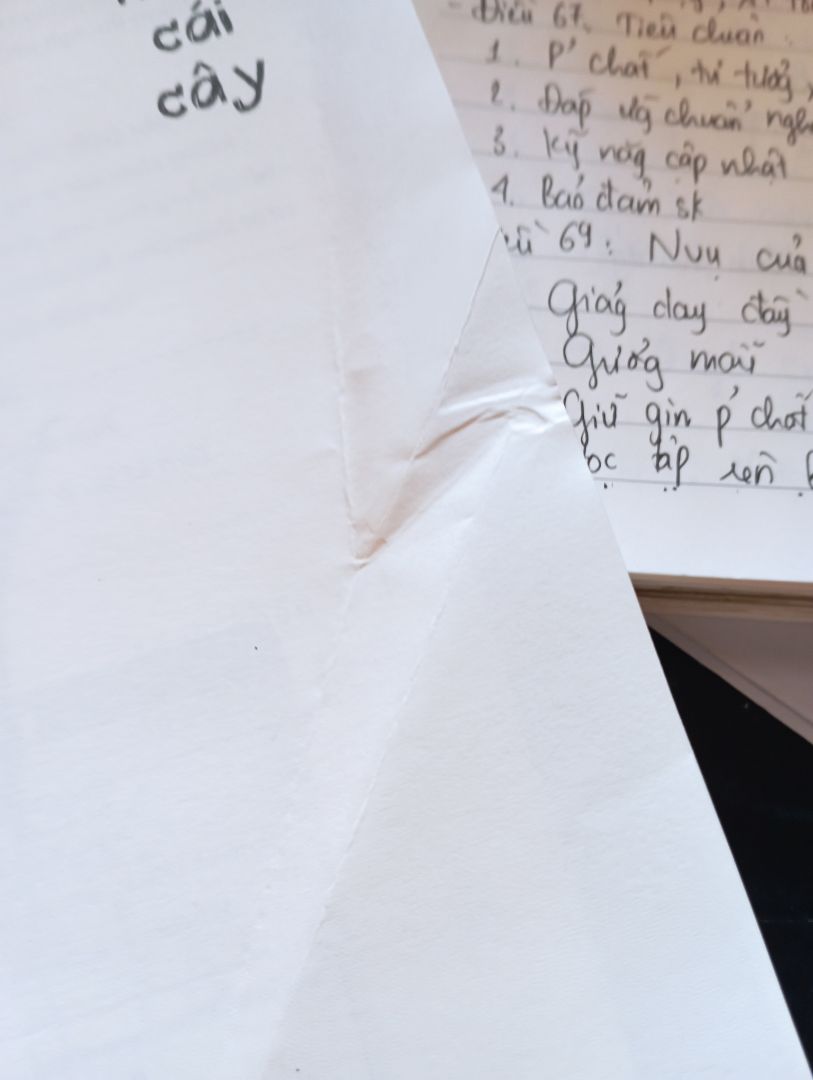 cái
cây
- Điều 67. Tiêu chuẩn
1. P' chất, tư tưởng,
2. Đáp ứg chuẩn
3. Kỹ năg cập nhật
4. Bảo đảm sk
69: Nvụ của
Giảg dạy đầy
Gươg mẫu
Giữ gìn p' chất
ọc tập rèn